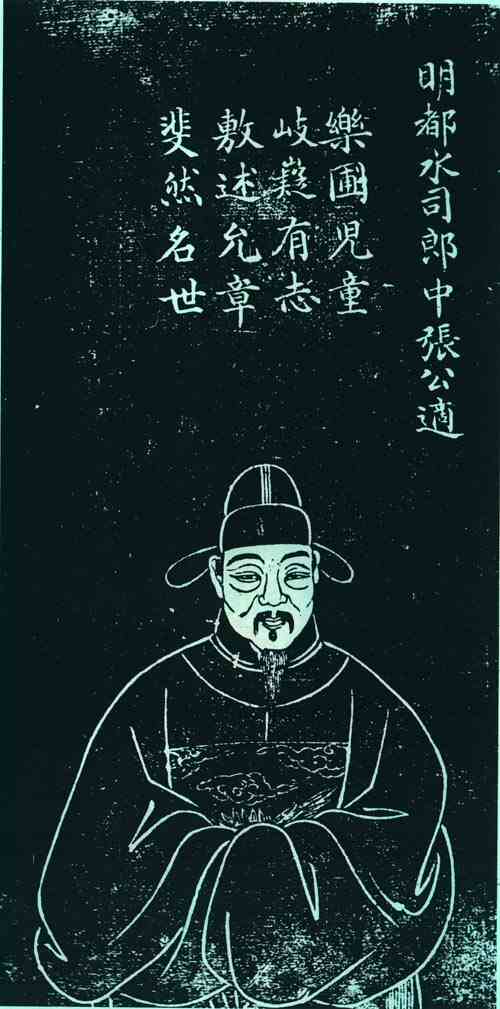 明都水司郎中張公適
樂圃児童
岐嶷有志
敷述允章
斐然名世